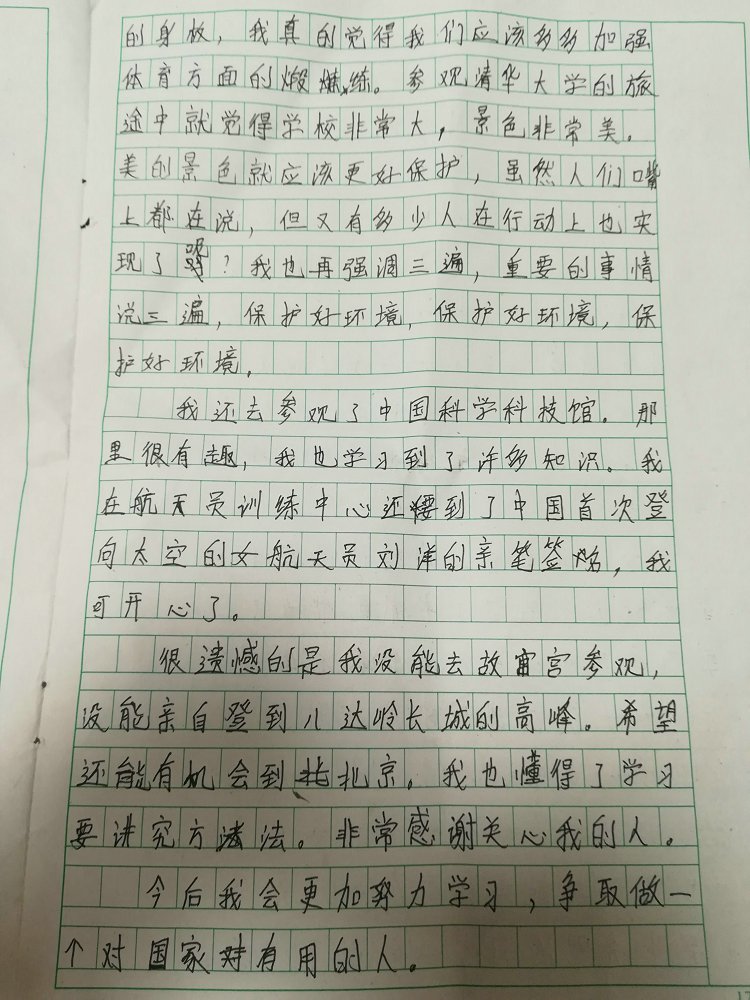 的身板，我真的觉得我们应该多多加强
体育方面的煅练。参观清华大学的旅
途中就觉得学校非常大，景色非常美。
美的景色就应该更好保护，虽然人们嘴
上都在说，但又有多少人在行动上也实
现了呢？我也再强调三遍，重要的事情
说三遍，保护好环境，保护好环境，保
护好环境。
我还去参观了中国科学科技馆。那
里很有趣，我也学习到了许多知识。我
在航天员训练中心还要到了中国首次登
向太空的女航天员刘洋的亲笔签名，我
可开心了。
很遗憾的是我没能去故宫参观，
没能亲自登到八达岭长城的高峰。希望
还能有机会到北京。我也懂得了学习
要讲究方法。非常感谢关心我的人。
今后我会更加努力学习，争取做一
个对国家有用的人。